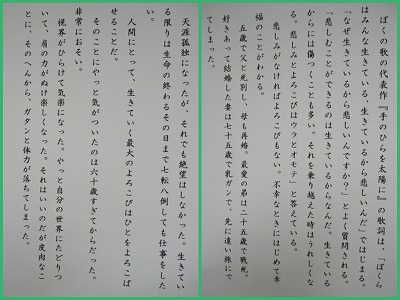 ぼくの歌の代表作『手のひらを太陽に』の歌詞は、「ぼくら
はみんな生きている、生きているから悲しいんだ」ではじまる。
「なぜ生きているから悲しいんですか?」とよく質問される。
「悲しむことができるのは生きているからなんだ。生きている
からには傷つくことも多い。それを乗り越えた時はうれしくな
る。悲しみとよろこびはウラとオモテ」と答えている。
悲しみがなければよろこびもない。不幸なときにはじめて幸
福のことがわかる。
五歳で父と死別し、母も再婚。最愛の弟は二十五歳で戦死。
好きあって結婚した妻は七十五歳で乳ガンで、先に遠い旅にで
てしまった。
天涯孤独になったが、それでも絶望はしなかった。生きてい
る限りは生命の終わるその日まで七転八倒しても仕事をした
い。
人間にとって、生きていく最大のよろこびはひとをよろこば
せることだ。
そのことにやっと気がついたのは六十歳すぎてからだった。
非常におそい。
視界がひらけて気楽になった。やっと自分の世界にたどりつ
いて、肩の力がぬけ楽しくなった。それはいいのだが皮肉なこ
とに、そのへんから、ガタンと体力が落ちてしまった。